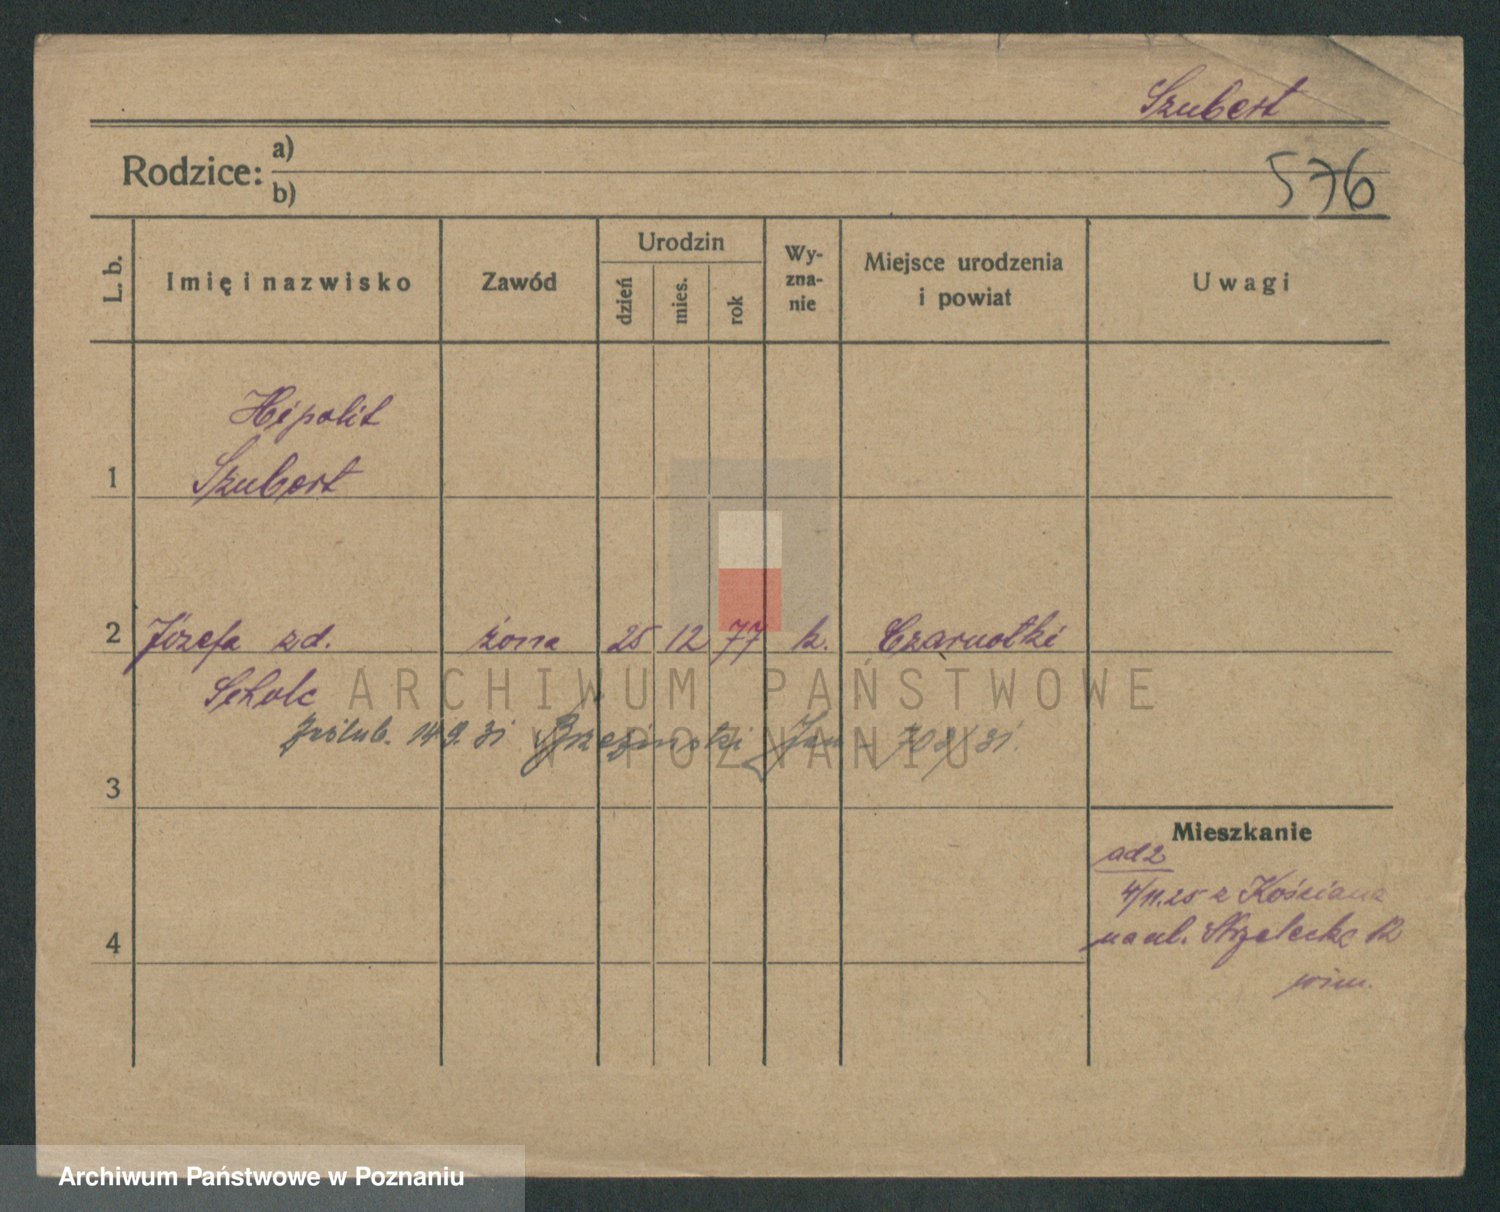 Szubert
Rodzice: a)
b)
576
L. b.
Imię i nazwisko
Zawód
Urodzin
dzień
mies.
rok
Wy-
zna-
nie
Miejsce urodzenia
i powiat
Uwagi
Hipolit
1 Szubert
2 Józefa zd. żona 25 12 77 k. Czarnotki
Scholc
ARCHIWUM PAŃSTWOWE
W POZNANIU
14 9. 31 Brzeziński Jan
3
Mieszkanie
ad 2
4/11.25 z Kościana
na ul. Strzelecka 12
4
Archiwum Państwowe w Poznaniu